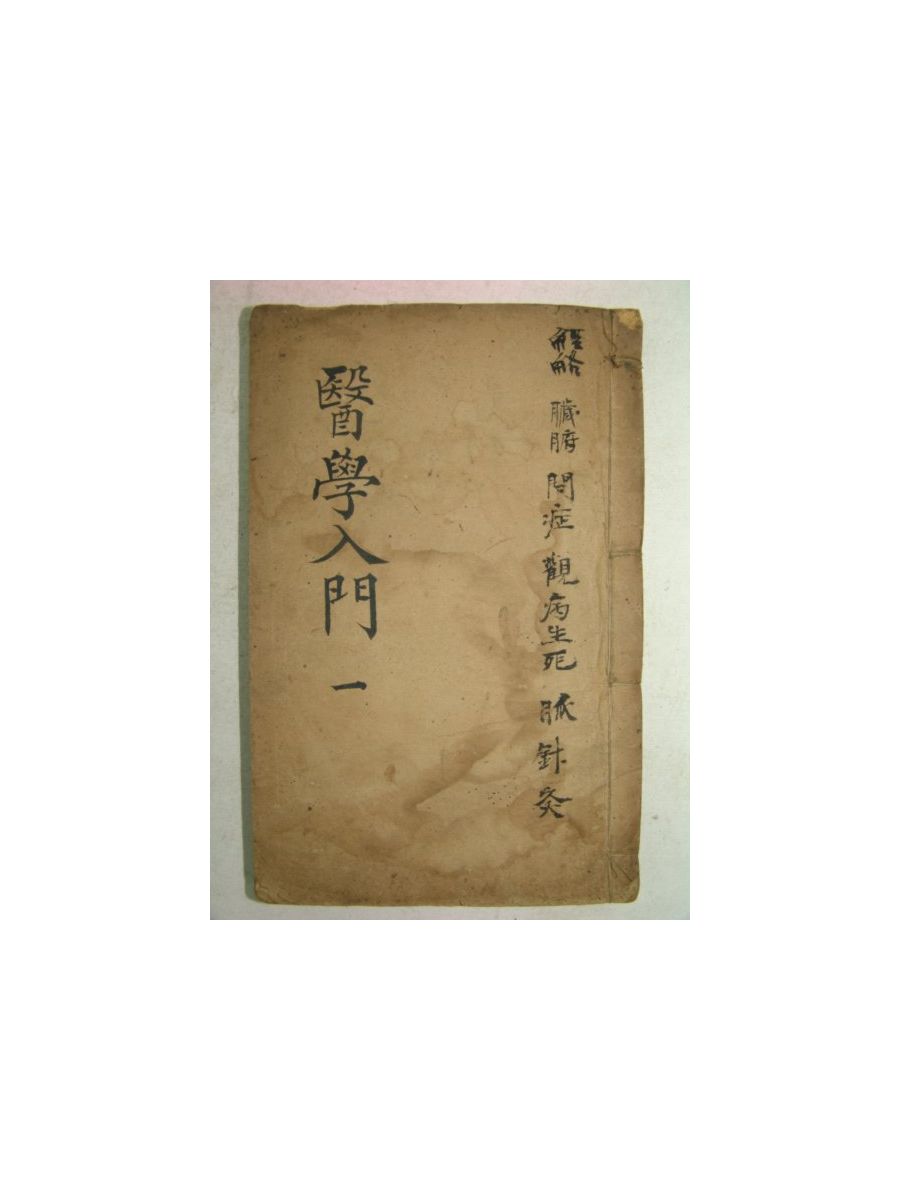 經絡 臟腑 問症 觀病生死 脈 針灸
醫學入門 一